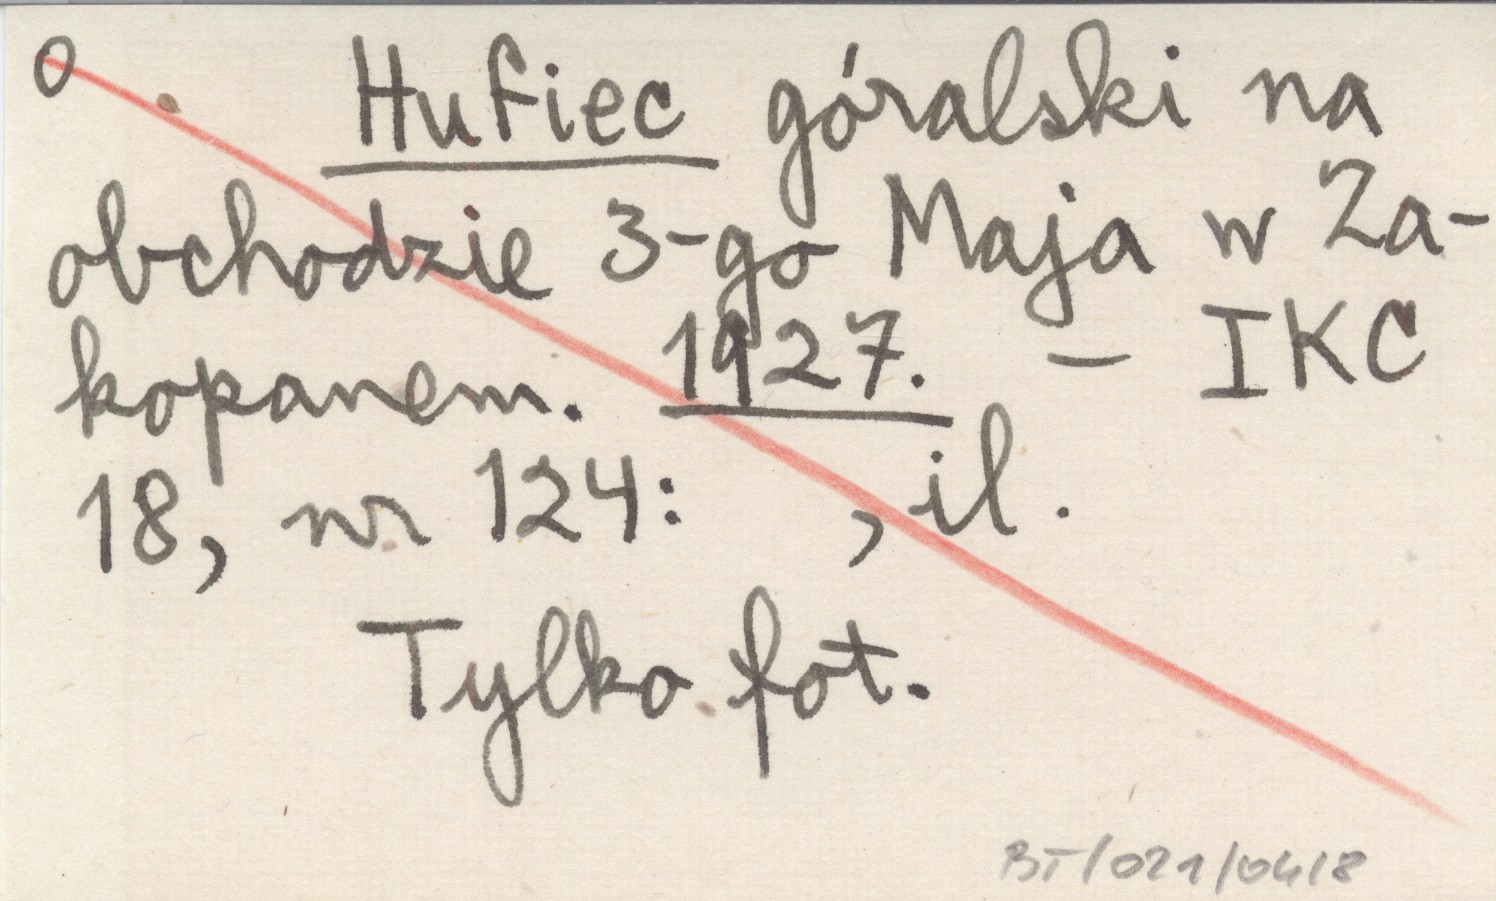 O Hufiec góralski na
obchodzie 3-go Maja w Za-
kopanem. 1927. – IKC
18, nr 124: , il.
Tylko fot.
BT/021/0418